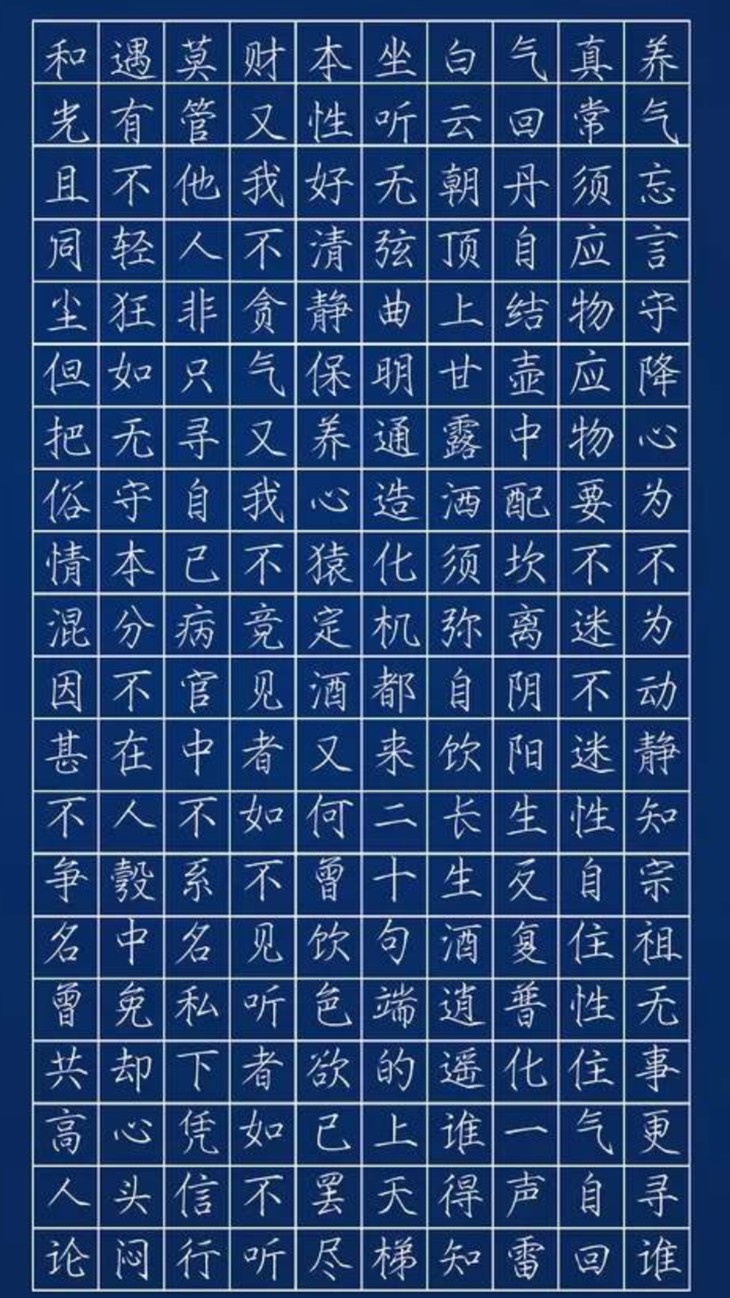 养气忘言守降心为不为动静知宗祖无事更寻谁
真常须应物应物要不迷不迷性自住性住气自回
气回丹自结壶中配坎离阴阳生反复普化一声雷
白云朝顶上甘露洒须弥自饮长生酒逍遥谁得知
坐听无弦曲明通造化机都来二十句端的上天梯
本性好清静保养心猿定酒又何曾饮色欲已罢尽
财又我不贪气又我不竞见者如不见听者如不听
莫管他人非只寻自己病官中不系名私下凭信行
遇有不轻狂如无守本分不在人彀中免却心头闷
和光且同尘但把俗情混因甚不争名曾共高人论